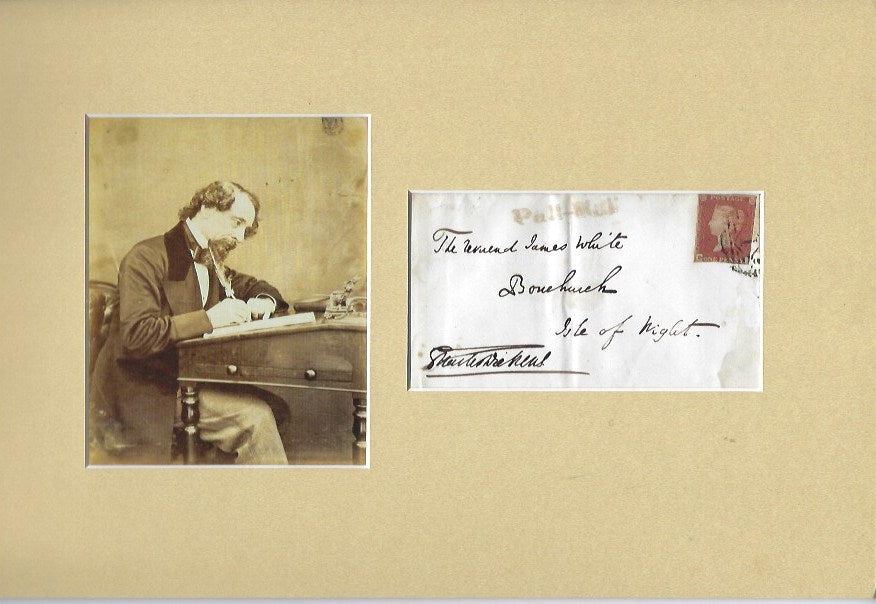 Pall-Mall
POSTAGE
The reverend James White
Bonchurch
Isle of Wight.
Charles Dickens